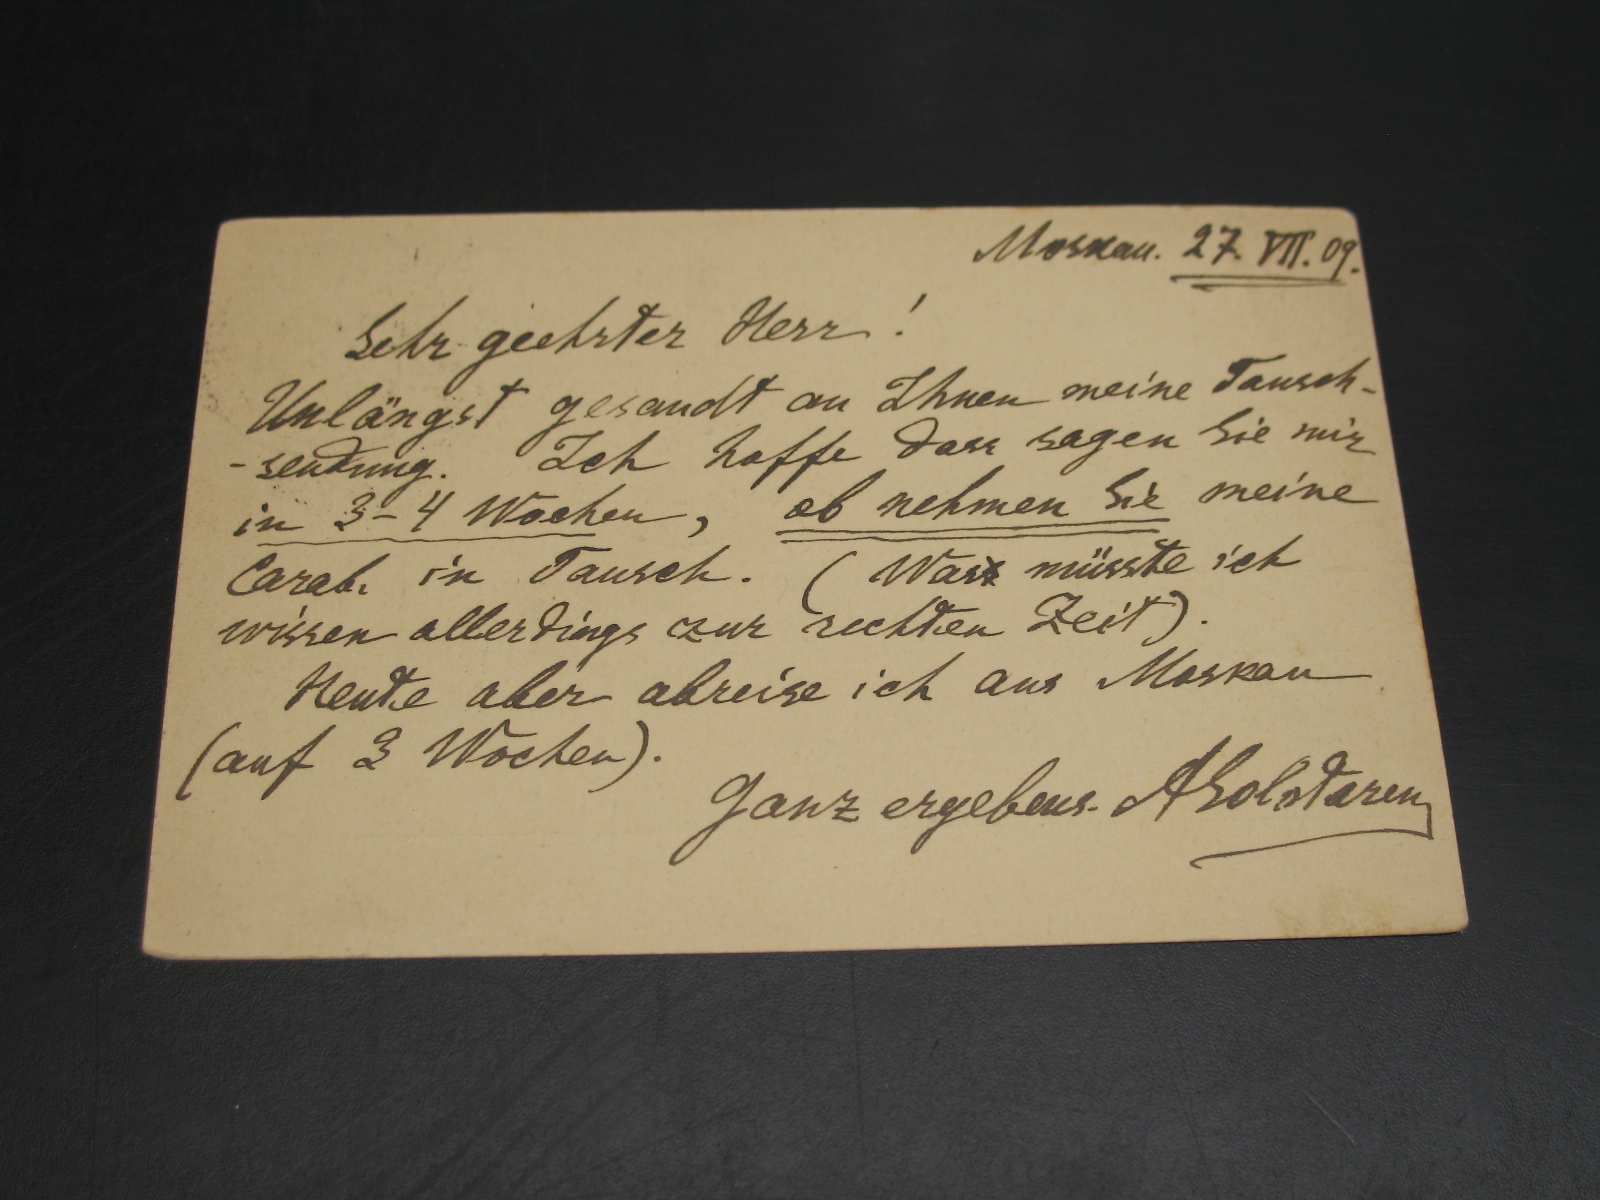 Moskau. 27. VII. 09.
Sehr geehrter Herr!
Unlängst gesandt an Ihnen meine Tausch-
-sendung. Ich hoffe dass sagen Sie mir
in 3-4 Wochen, ob nehmen Sie meine
Carab. in Tausch. (Was müsste ich
wissen allerdings zur rechten Zeit).
Heute aber abreise ich aus Moskau
(auf 3 Wochen).
Ganz ergebens.